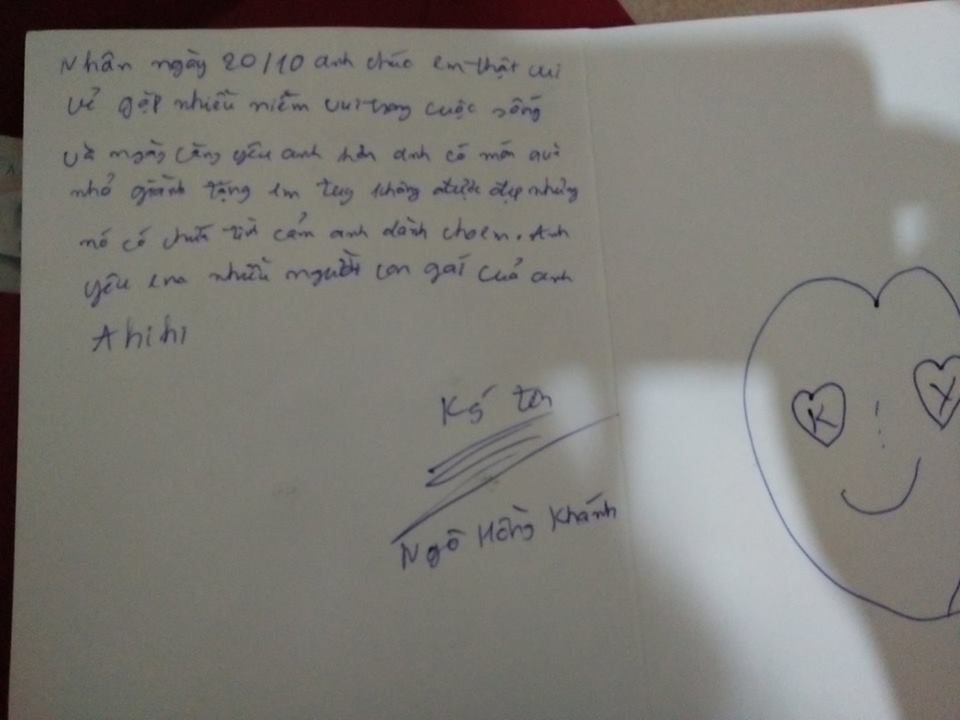 Nhân ngày 20/10 anh chúc em thật vui
vẻ gặp nhiều niềm vui trong cuộc sống
và ngày càng yêu anh hơn anh có món quà
nhỏ giành tặng em tuy không được đẹp nhưng
nó có chứa tình cảm anh dành cho em. Anh
yêu em nhiều người con gái của anh
Ahihi
Ký tên
Ngô Hồng Khánh
K
Y